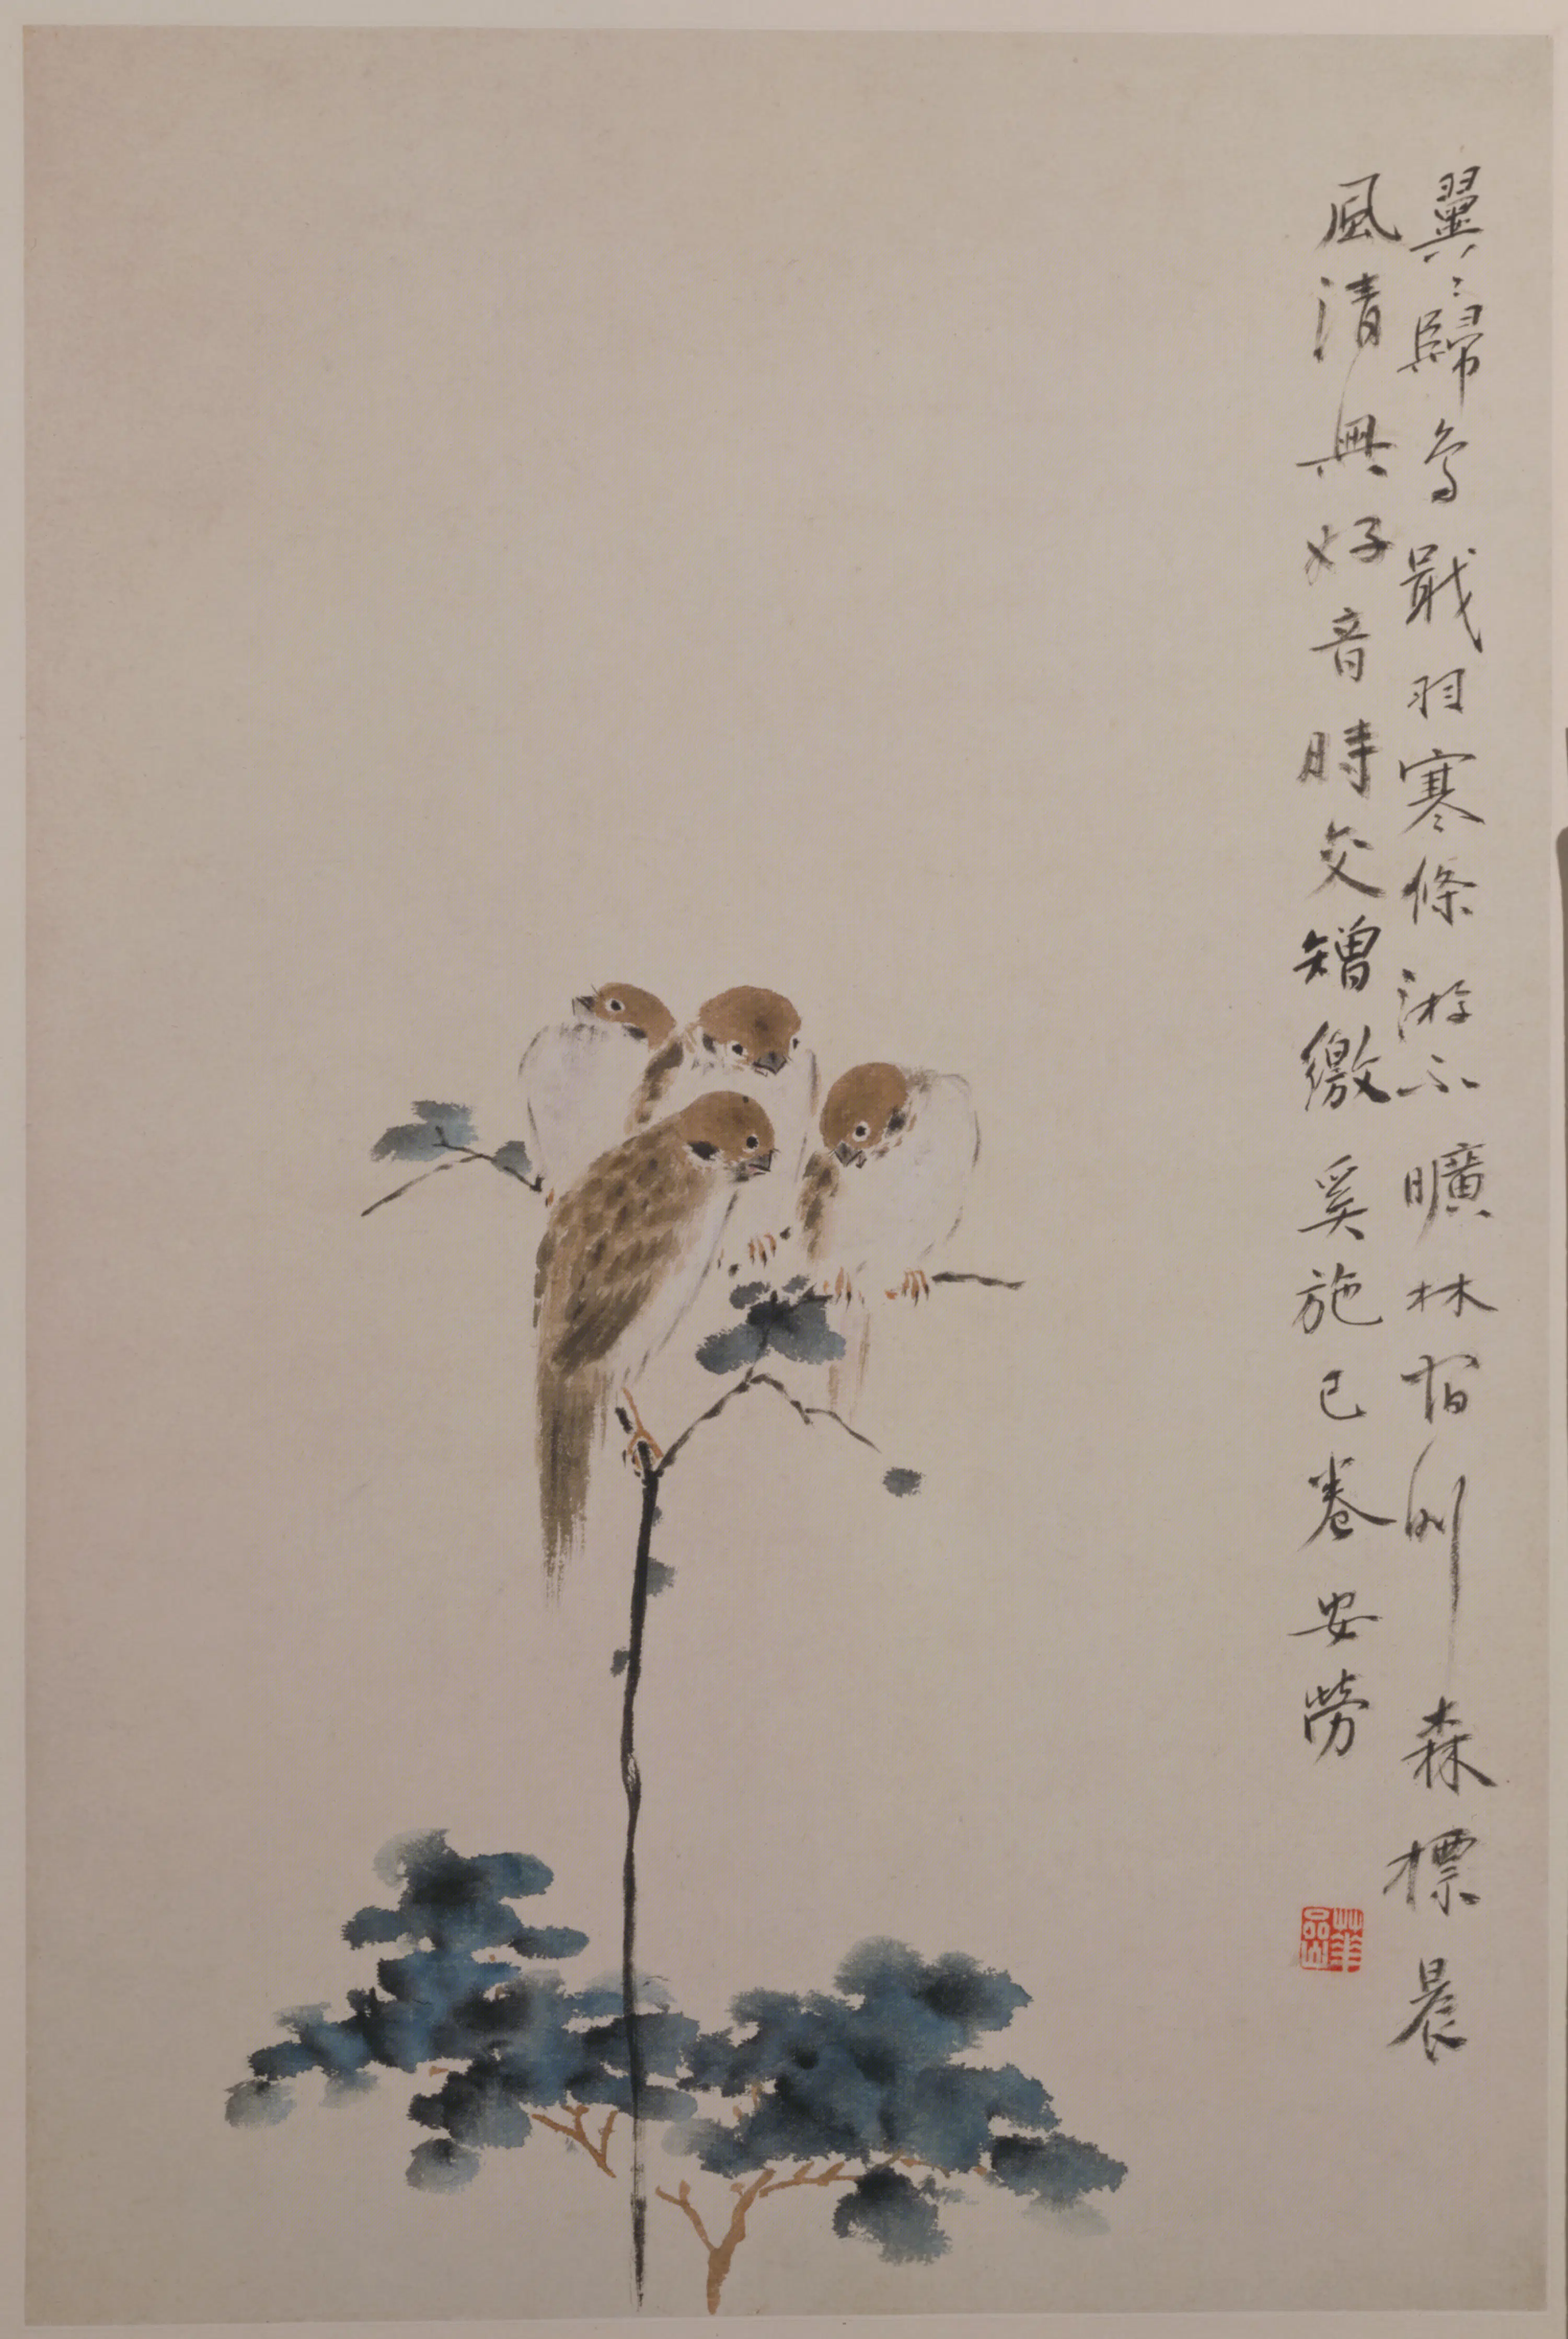 翼〻歸鳥戢羽寒條游不曠林宿則森標晨
風清興好音時交矰繳奚施已卷安勞
華嵒